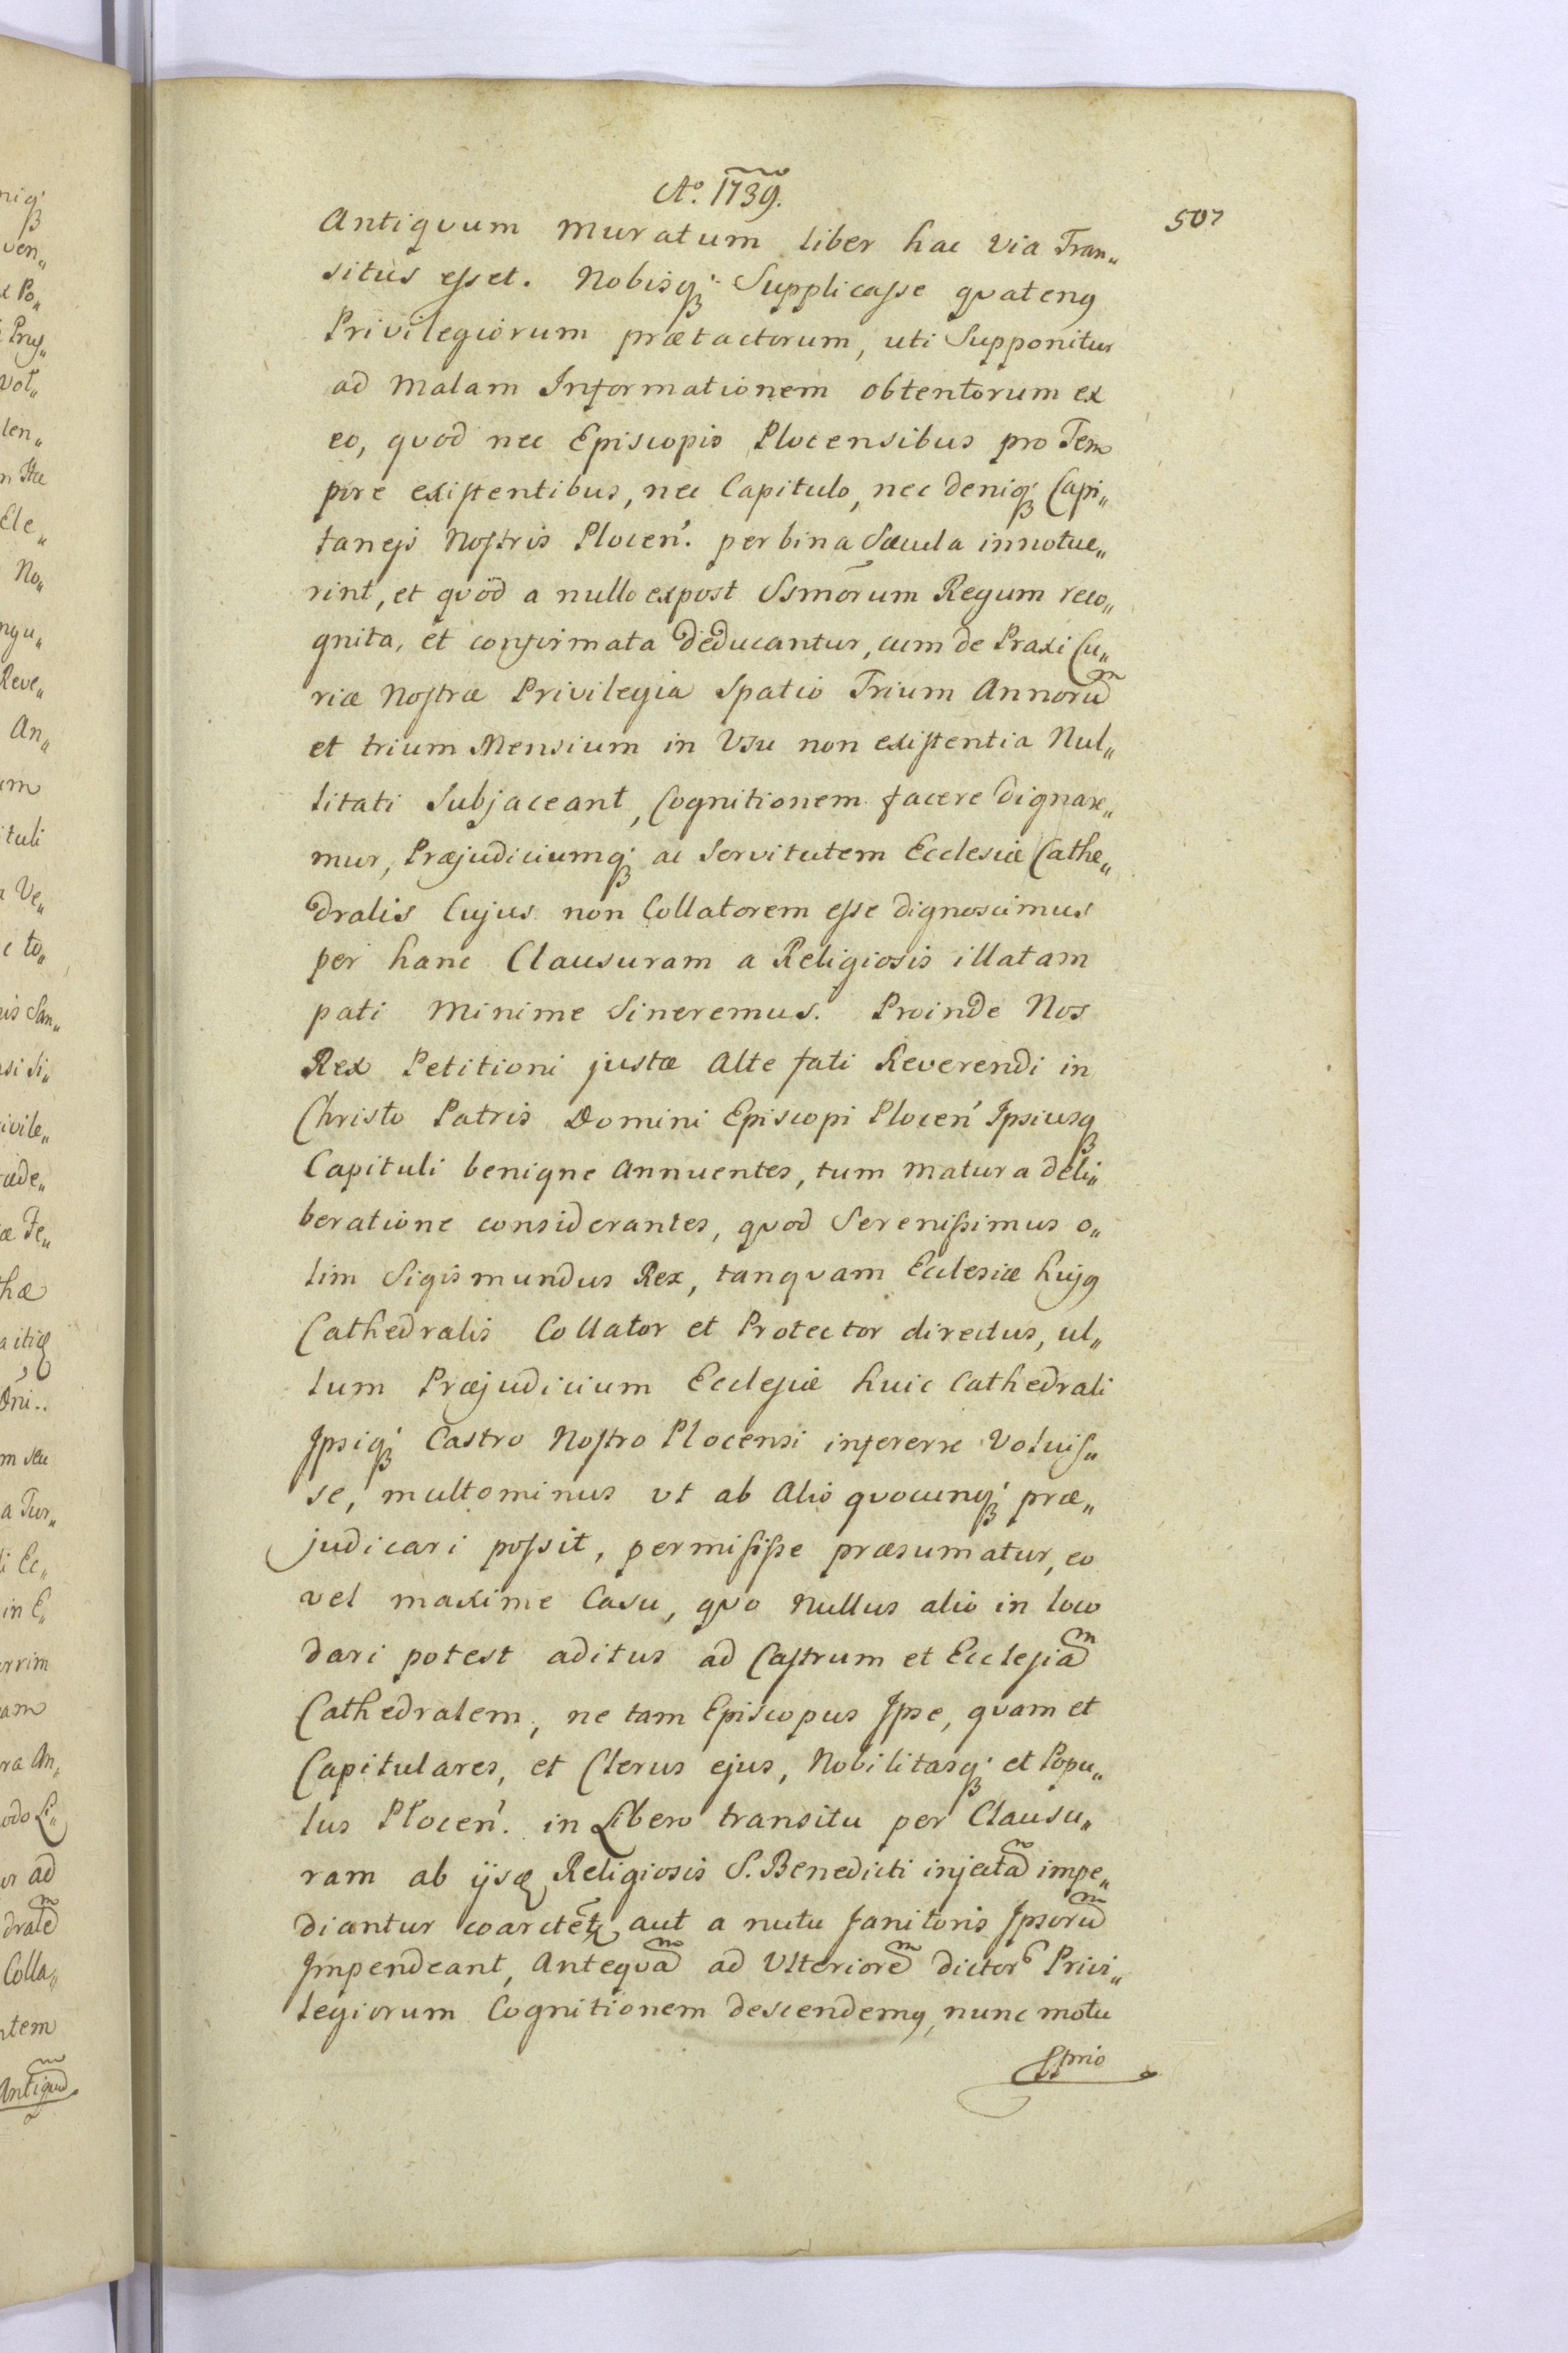 Ao. 1739.
507
Antiquum muratum liber hac via Tran„
situs esset. Nobisq; Supplicasse quatenq
Privilegiorum prætactorum, uti Supponitur
ad malam Informationem obtentorum ex
eo, quod nec Episcopis Plocensibus pro Tem
pore existentibus, nec Capitulo, nec deniq; Capi„
taneis Nostris Plocen̄. per bina Sæcula innotue„
rint, et quod a nullo expost Ssmõrum Regum reco„
gnita, et confirmata deducantur, cum de Praxi Cu„
riæ Nostræ Privilegia Spatio Trium Annorũ
et trium Mensium in Usu non existentia Nul„
litati Subjaceant, Cognitionem facere dignare„
mur, Præjudiciumq; ac Servitutem Ecclesiæ Cathe„
dralis Cujus non Collatorem esse dignoscimus
per hanc Clausuram a Religiosis illatam
pati Minime Sineremus. Proinde Nos
Rex Petitioni justæ Alte fati Reverendi in
Christo Patris Domini Episcopi Plocen̄ Ipsiusq;
Capituli benigne Annuentes, tum matura deli„
beratione considerantes, quod Serenissimus o„
lim Sigismundus Rex, tanquam Ecclesiæ hujq
Cathedralis Collator et Protector directus, ul„
lum Præjudicium Ecclesiæ huic Cathedrali
Ipsiq; Castro Nostro Plocensi infererre Voluis„
se, multominus ut ab Alio quocunq; præ„
judicari possit, permisisse præsumatur, eo
vel maxime Casu, quo Nullus alio in loco
dari potest aditus ad Castrum et Ecclesiã
Cathedralem, ne tam Episcopus Ipse, quam et
Capitulares, et Clerus ejus, Nobilitasq; et Popu„
lus Plocen̄. in Libero transitu per Clausu„
ram ab ijsdẽ Religiosis S. Benedicti injectã impe„
diantur coarctẽtq aut a nutu Janitoris Ipsorũ
Impendeant, Antequã ad Ulteriorẽ dictor̃ Privi„
legiorum Cognitionem descendemq, nunc motu